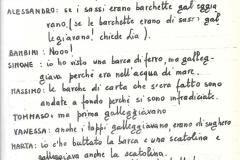 ALESSANDRO: se i sassi erano barchette gal eggia
vano. (se le barchette erano di sassi gal
leggiavano! chiede Lia).
BAMBINI: Nooo!
SIMONE: io ho visto una barca di ferro, ma galleg-
giava perché era nell'acqua di mare.
MASSIMO: le barche di carta che s'era fatto sono
andate a fondo perché si sono infradicite.
TOMMASO: ma prima galleggiavano
VANESSA: anche i tappi galleggiavano, erano di sughero
MARTA: io ho buttato la barca e una scatolina e
galleggiava anche la scatolina.